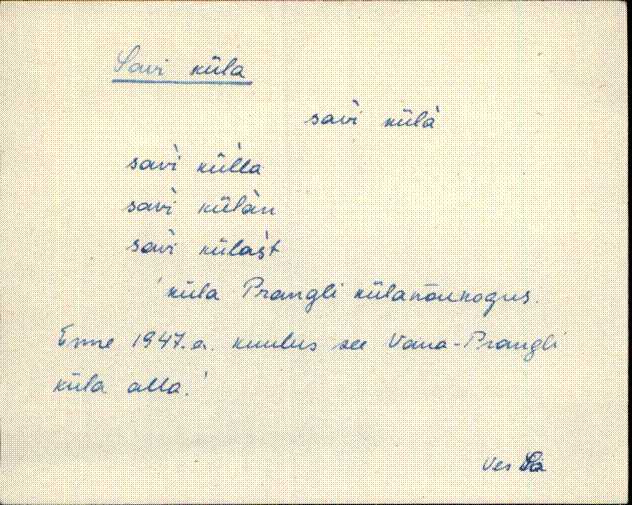 Savi küla
savì külà
savì kül̀la
savì külàn
savì külàst
'küla Prangli külanõukogus.
Enne 1947.a. kuulus see Vana-Prangli
küla alla.'
Ves